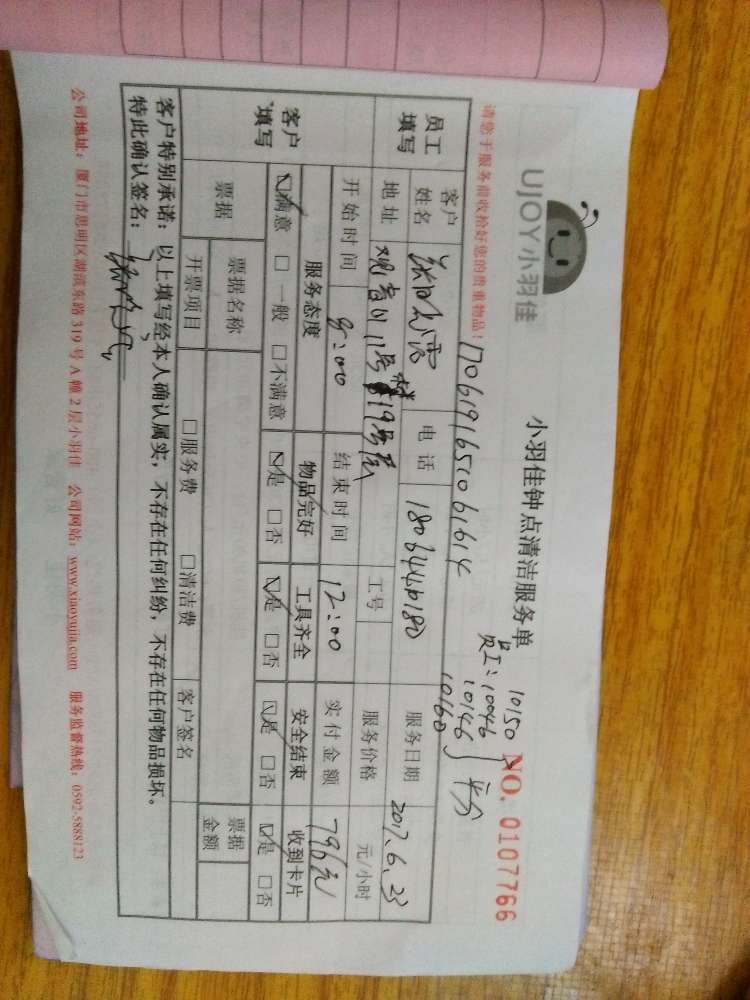 UJOY小羽佳
小羽佳钟点清洁服务单
NO. 0107766
10150
员工:10046
10146
10160
平分
请您于服务前收拾好您的贵重物品!
1706191651061614
员工填写
客户姓名
电话
服务日期 2017.6.23
地址 观音山11号楼19号店
工号
服务价格 元/小时
开始时间 8:00 结束时间 12:00 实付金额 796元
客户填写
服务态度 物品完好 工具齐全 安全结束 收到卡片
☑满意 □一般 □不满意 ☑是 □否 ☑是 □否 ☑是 □否 ☑是 □否
票据 票据名称 票据金额
开票项目 □服务费 □清洁费 客户签名
客户特别承诺:以上填写经本人确认属实,不存在任何纠纷,不存在任何物品损坏。
特此确认签名:
公司地址:厦门市思明区湖滨东路319号A幢2层小羽佳 公司网站:www.xiaoyujia.com 服务监督热线:0592-5888123